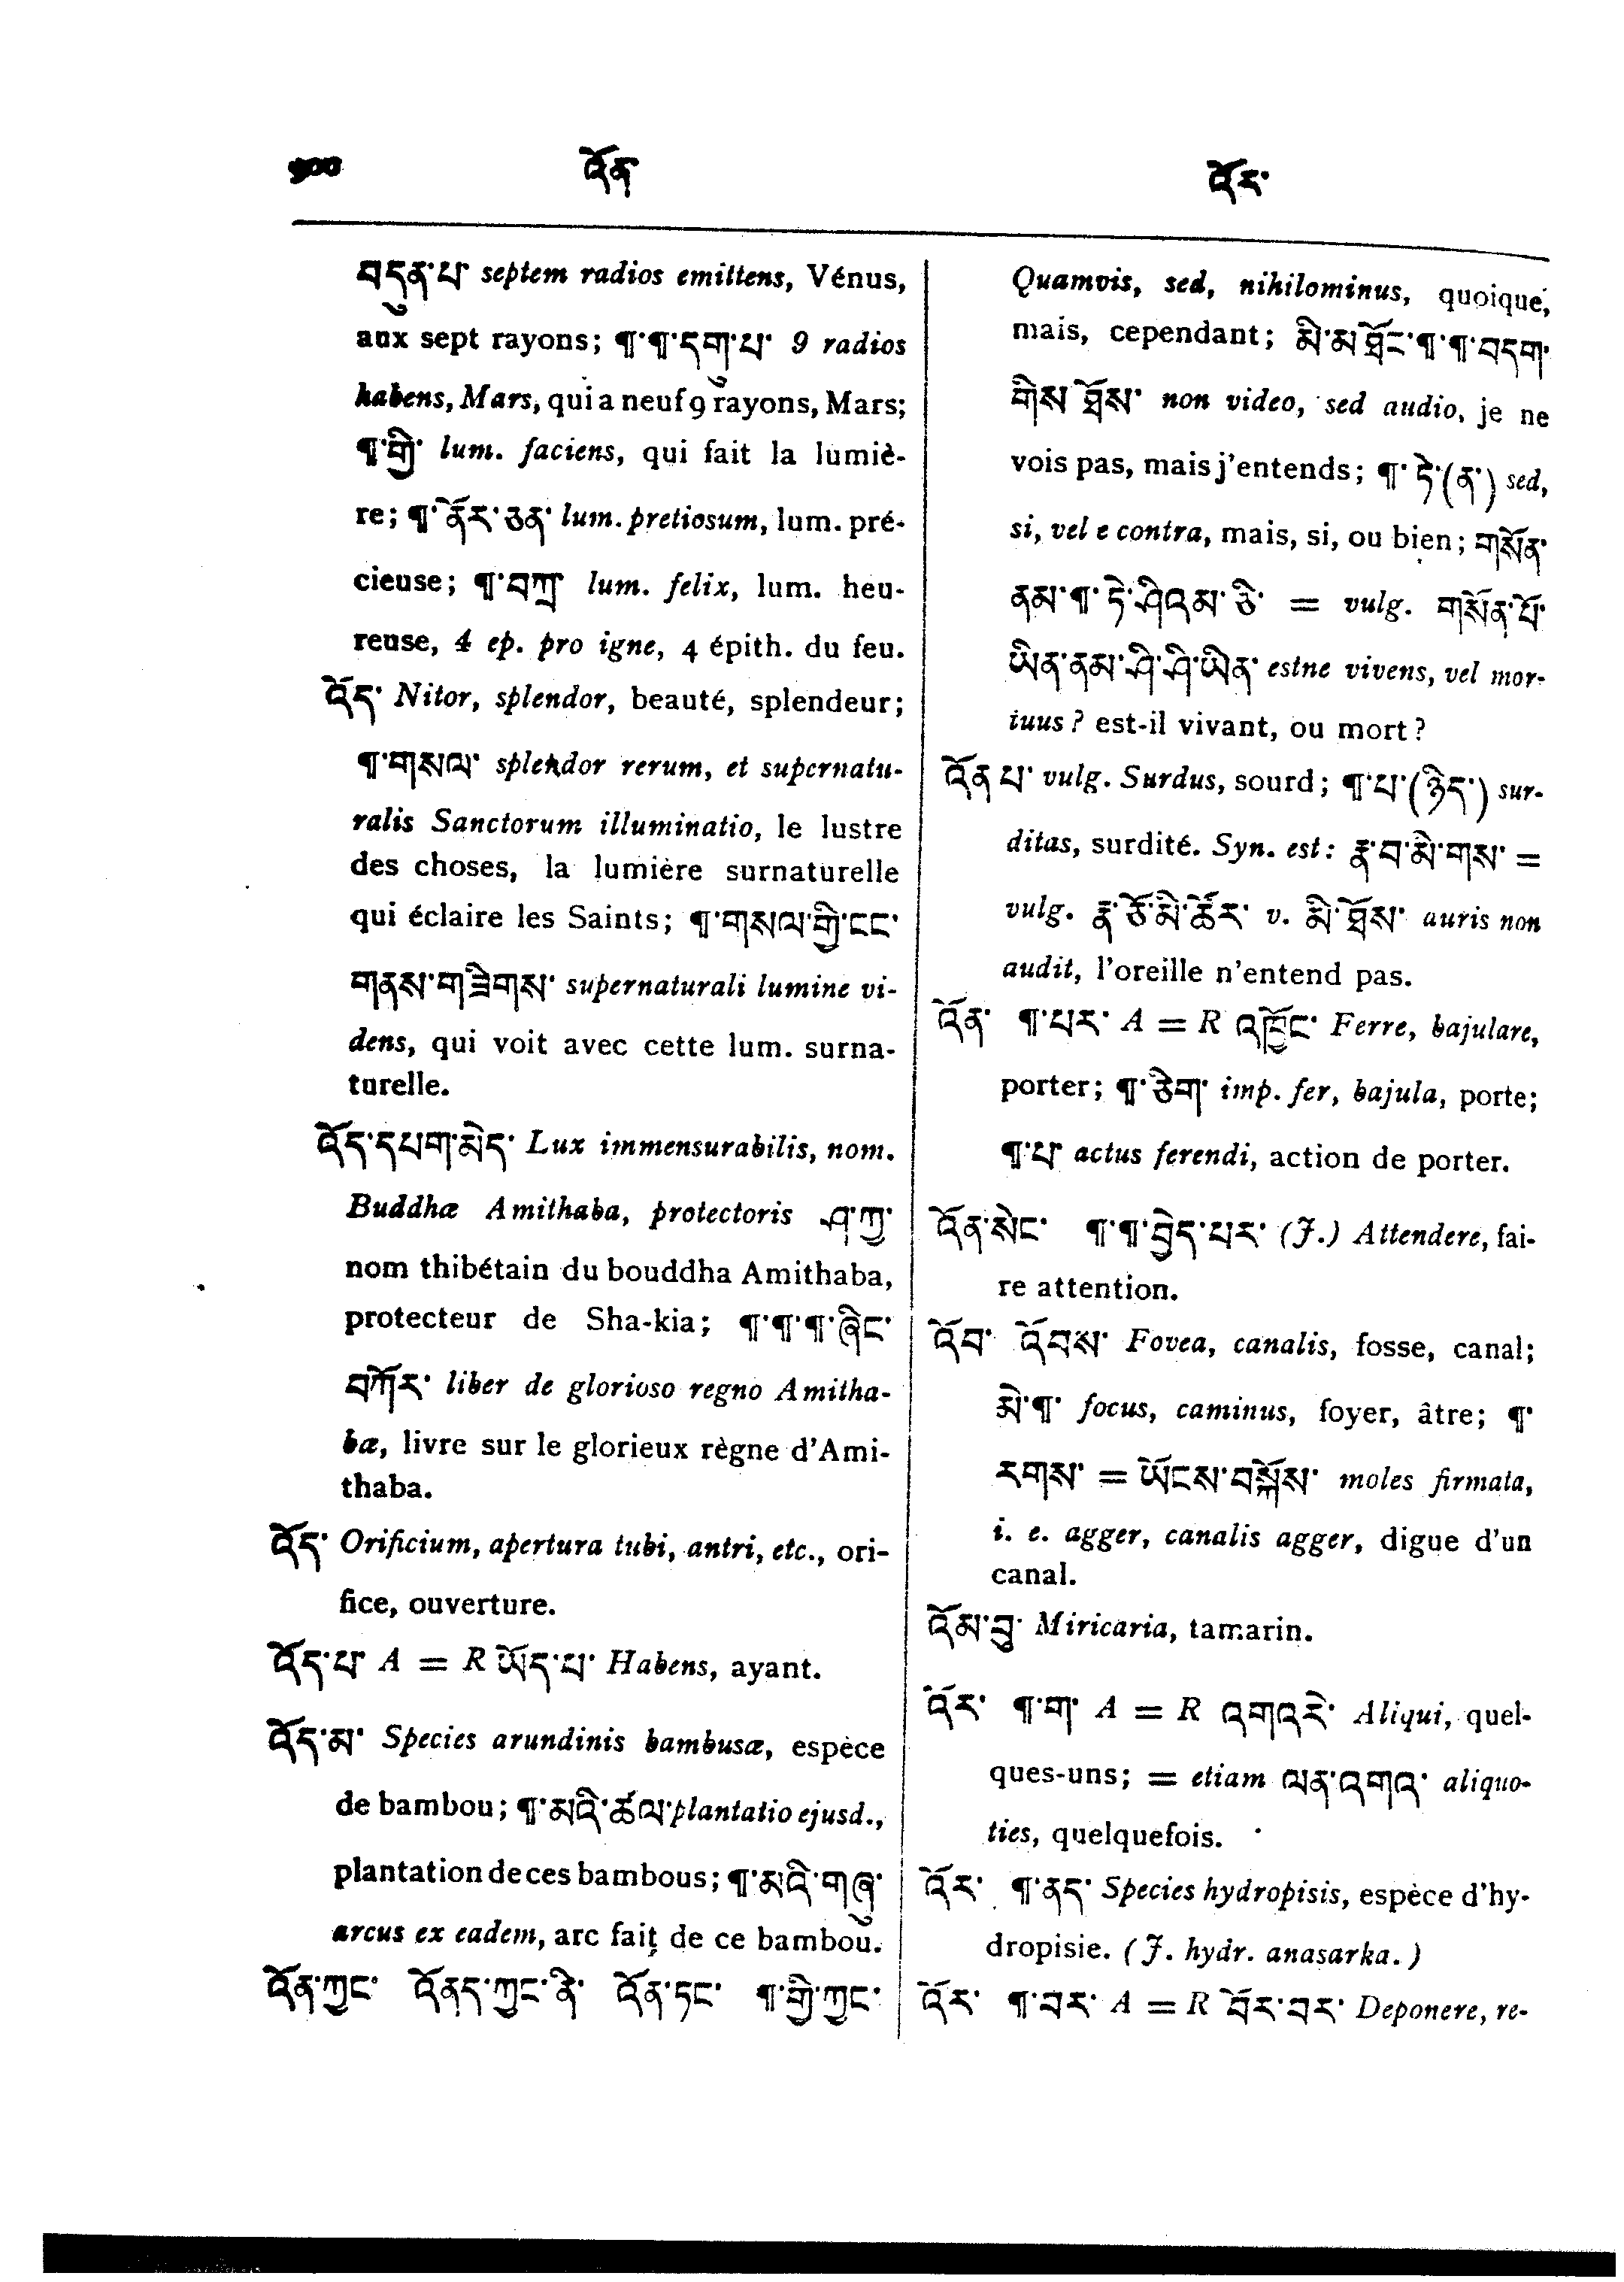 900 འོན་ འོར་
བདུན་པ་ septem radios emittens, Vénus,
aux sept rayons; ¶་¶་དགུ་པ་ 9 radios
habens, Mars, qui a neuf 9 rayons, Mars;
¶་གྱི་ lum. faciens, qui fait la lumiè-
re; ¶་ནོར་ཅན་ lum. pretiosum, lum. pré-
cieuse; ¶་བཀྲ་ lum. felix, lum. heu-
reuse, 4 ep. pro igne, 4 épith. du feu.
འོད་ Nitor, splendor, beauté, splendeur;
¶་གསལ་ splendor rerum, et supernatu-
ralis Sanctorum illuminatio, le lustre
des choses, la lumière surnaturelle
qui éclaire les Saints; ¶་གསལ་གྱི་ངང་
གནས་གཟིགས་ supernaturali lumine vi-
dens, qui voit avec cette lum. surna-
turelle.
འོད་དཔག་མེད་ Lux immensurabilis, nom.
Buddhæ Amithaba, protectoris ཤ་ཀྱ་
nom thibétain du bouddha Amithaba,
protecteur de Sha-kia; ¶་¶་¶་ཞིང་
བཀོར་ liber de glorioso regno Amitha-
bæ, livre sur le glorieux règne d'Ami-
thaba.
འོད་ Orificium, apertura tubi, antri, etc., ori-
fice, ouverture.
འོད་པ་ A = R ཡོད་པ་ Habens, ayant.
འོད་མ་ Species arundinis bambusæ, espèce
de bambou; ¶་མའི་ཚལ་ plantatio ejusd.,
plantation de ces bambous; ¶་མའི་གཞུ་
arcus ex eadem, arc fait de ce bambou.
འོན་ཀྱང་ འོནད་ཀྱང་ནི་ འོན་ཏང་ ¶་གྱི་ཀྱང་
Quamvis, sed, nihilominus, quoique,
mais, cependant; མི་མཐོང་¶་¶་བདག་
གིས་ཐོས་ non video, sed audio, je ne
vois pas, mais j'entends; ¶་ཏེ་(ན་) sed,
si, vel e contra, mais, si, ou bien; གསོན་
ནམ་¶་ཏེ་ཤིའམ་ཅི་ = vulg. གསོན་པོ་
ཡིན་ནམ་ཤི་ཤི་ཡིན་ estne vivens, vel mor-
tuus? est-il vivant, ou mort?
འོན་པ་ vulg. Surdus, sourd; ¶་པ་(ཉིད་) sur-
ditas, surdité. Syn. est: རྣ་བ་མེ་གས་ =
vulg. རྣ་ཅོ་མི་ཚོར་ v. མི་ཐོས་ auris non
audit, l'oreille n'entend pas.
འོན་ ¶་པར་ A = R འཁྱོང་ Ferre, bajulare,
porter; ¶་ཅིག་ imp. fer, bajula, porte;
¶་པ་ actus ferendi, action de porter.
འོན་སེང་ ¶་¶་བྱེད་པར་ (J.) Attendere, fai-
re attention.
འོབ་ འོབས་ Fovea, canalis, fosse, canal;
མེ་¶་ focus, caminus, foyer, âtre; ¶་
རགས་ = ཡོངས་བསྐོས་ moles firmata,
i. e. agger, canalis agger, digue d'un
canal.
འོམ་བུ་ Miricaria, tamarin.
འོར་ ¶་ག་ A = R འགའརེ་ Aliqui, quel-
ques-uns; = etiam ལན་འགའ་ aliquo-
ties, quelquefois.
འོར་ ¶་ནད་ Species hydropisis, espèce d'hy-
dropisie. (J. hydr. anasarka.)
འོར་ ¶་བར་ A = R བོར་བར་ Deponere, re-